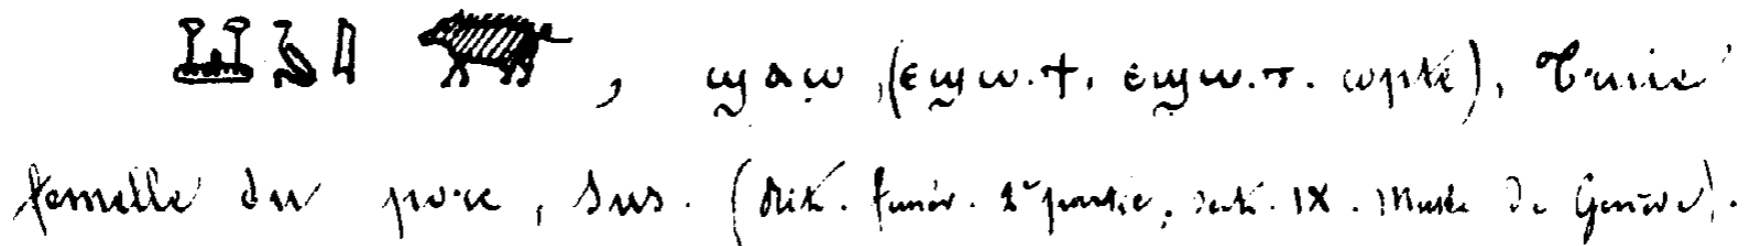 𓆷𓅱𓇋 𓃟, ϣⲁⲱ, (ⲉϣⲱ.ϯ. ⲉϣⲱ.ⲧ. copte), Truie
femelle du porc, sus. (Rit. funér. 2e partie, sect. IX. Musée de Genève).